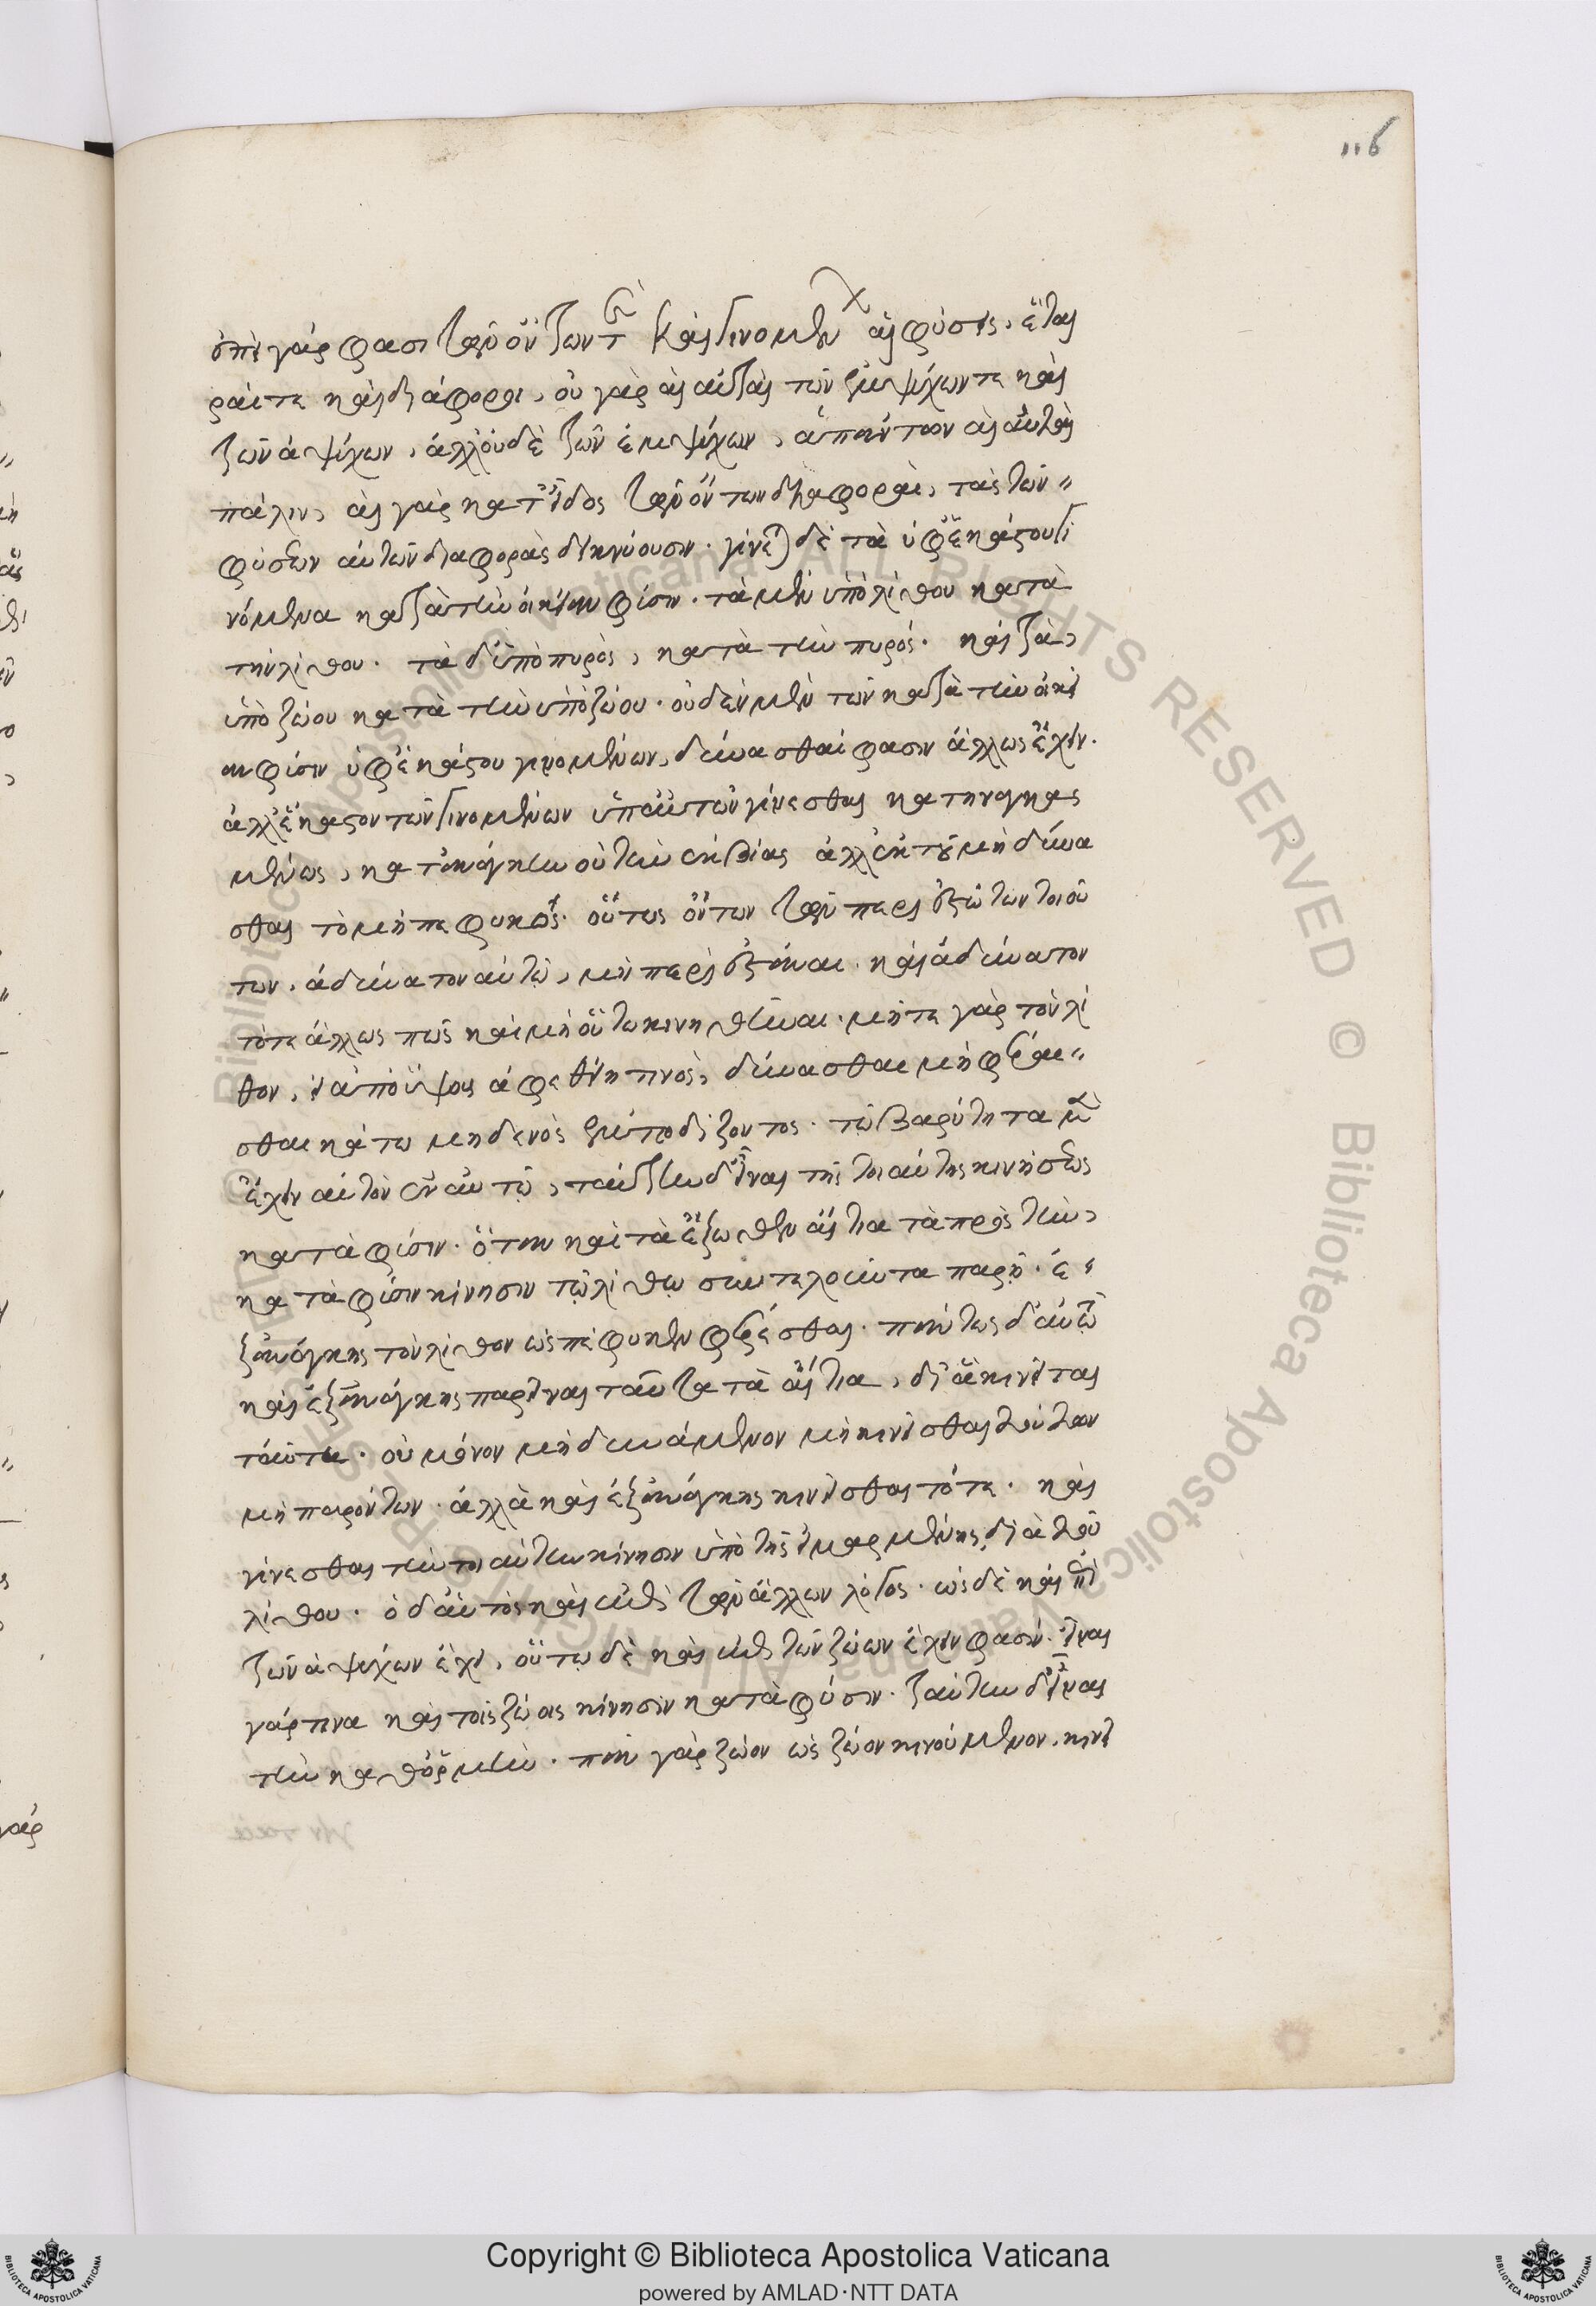 116
ἐπεὶ γάρ φασι τῶν ὄντων τε καὶ γινομένων αἱ φύσεις, ἕτε
ραί τε καὶ διάφοροι, οὐ γὰρ αἱ αὐταὶ τῶν ἐμψύχων τε καὶ
τῶν ἀψύχων, ἀλλ' οὐδὲ τῶν ἐμψύχων, ἁπάντων αἱ αὐταὶ
πάλιν, αἱ γὰρ κατ' εἶδος τῶν ὄντων διαφοραὶ, τὰς τῶν
φύσεων αὐτῶν διαφορὰς δεικνύουσιν· γίνεται δὲ τὰ ὑφ' ἑκάστου γι
νόμενα κατὰ τὴν οἰκείαν φύσιν· τὰ μὲν ὑπὸ λίθου κατὰ
τὴν λίθου· τὰ δ' ὑπὸ πυρὸς, κατὰ τὴν πυρός· καὶ τὰ,
ὑπὸ ζώου κατὰ τὴν ὑπὸ ζώου· οὐδὲν μὲν τῶν κατὰ τὴν οἰκεί
αν φύσιν ὑφ' ἑκάστου γινομένων, δύνασθαί φασιν ἄλλως ἔχειν·
ἀλλ' ἕκαστον τῶν γινομένων ὑπ' αὐτῶν γίνεσθαι κατηναγκας
μένως, κατ' ἀνάγκην οὐ τὴν ἐκ βίας ἀλλ' ἐκ τοῦ μὴ δύνα
σθαι τὸ μὴ πεφυκὸς· οὕτως ὄντων τῶν περιεστώτων τοιού
των, ἀδύνατον αὐτῷ, μὴ περιεστάναι· καὶ ἀδύνατον
τότε ἄλλως πως καὶ μὴ οὕτω κινηθῆναι· μήτε γὰρ τὸν λί
θον, εἰ ἀπὸ ὕψους ἀφεθείη τινὸς, δύνασθαι μὴ φέρε
σθαι κάτω μηδενὸς ἐμποδίζοντος· τῷ βαρύτητα μὲν
ἔχειν αὐτὸν ἐν αὑτῷ, ταύτην δ' εἶναι τῆς τοιαύτης κινήσεως
κατὰ φύσιν· ὅταν καὶ τὰ ἔξωθεν αἴτια τὰ πρὸς τὴν,
κατὰ φύσιν κίνησιν τῷ λίθῳ συντελοῦντα παρῇ· ἐ
ξ ἀνάγκης τὸν λίθον ὡς πέφυκεν φέρεσθαι· πάντως δ' αὐτῷ
καὶ ἐξ ἀνάγκης παρεῖναι ταῦτα τὰ αἴτια, δι' ἃ κινεῖται
τότε· οὐ μόνον μὴ δυνάμενον μὴ κινεῖσθαι τούτων
μὴ παρόντων· ἀλλὰ καὶ ἐξ ἀνάγκης κινεῖσθαι τότε· καὶ
γίνεσθαι τὴν τοιαύτην κίνησιν ὑπὸ τῆς εἱμαρμένης διὰ τοῦ
λίθου· ὁ δ' αὐτὸς καὶ ἐπὶ τῶν ἄλλων λόγος· ὡς δὲ καὶ ἐπὶ
τῶν ἀψύχων ἔχει, οὕτω δὲ καὶ ἐπὶ τῶν ζώων ἔχειν φασίν· εἶναι
γάρ τινα καὶ τοῖς ζώοις κίνησιν κατὰ φύσιν· ταύτην δ' εἶναι
τὴν καθ' ὁρμήν· πᾶν γὰρ ζῷον ὡς ζῷον κινούμενον, κινεῖ
Copyright © Biblioteca Apostolica Vaticana
powered by AMLAD·NTT DATA